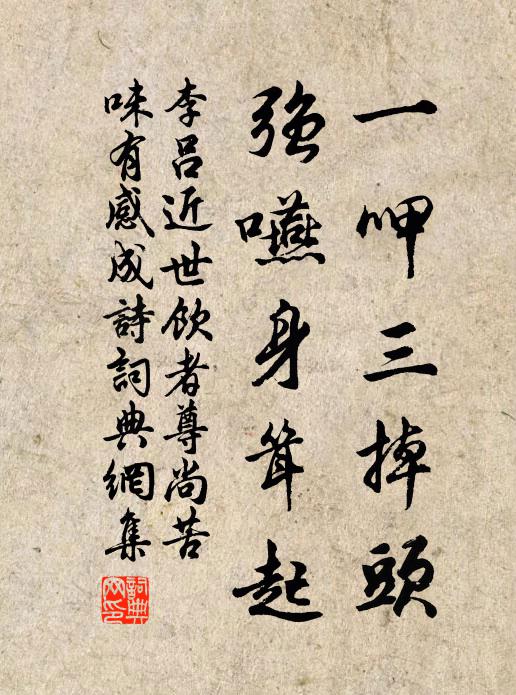 一呷三掉頭
強嚥身耸起
李呂近世飲者尊尚苦
味有感成詩詞典網集
詞典